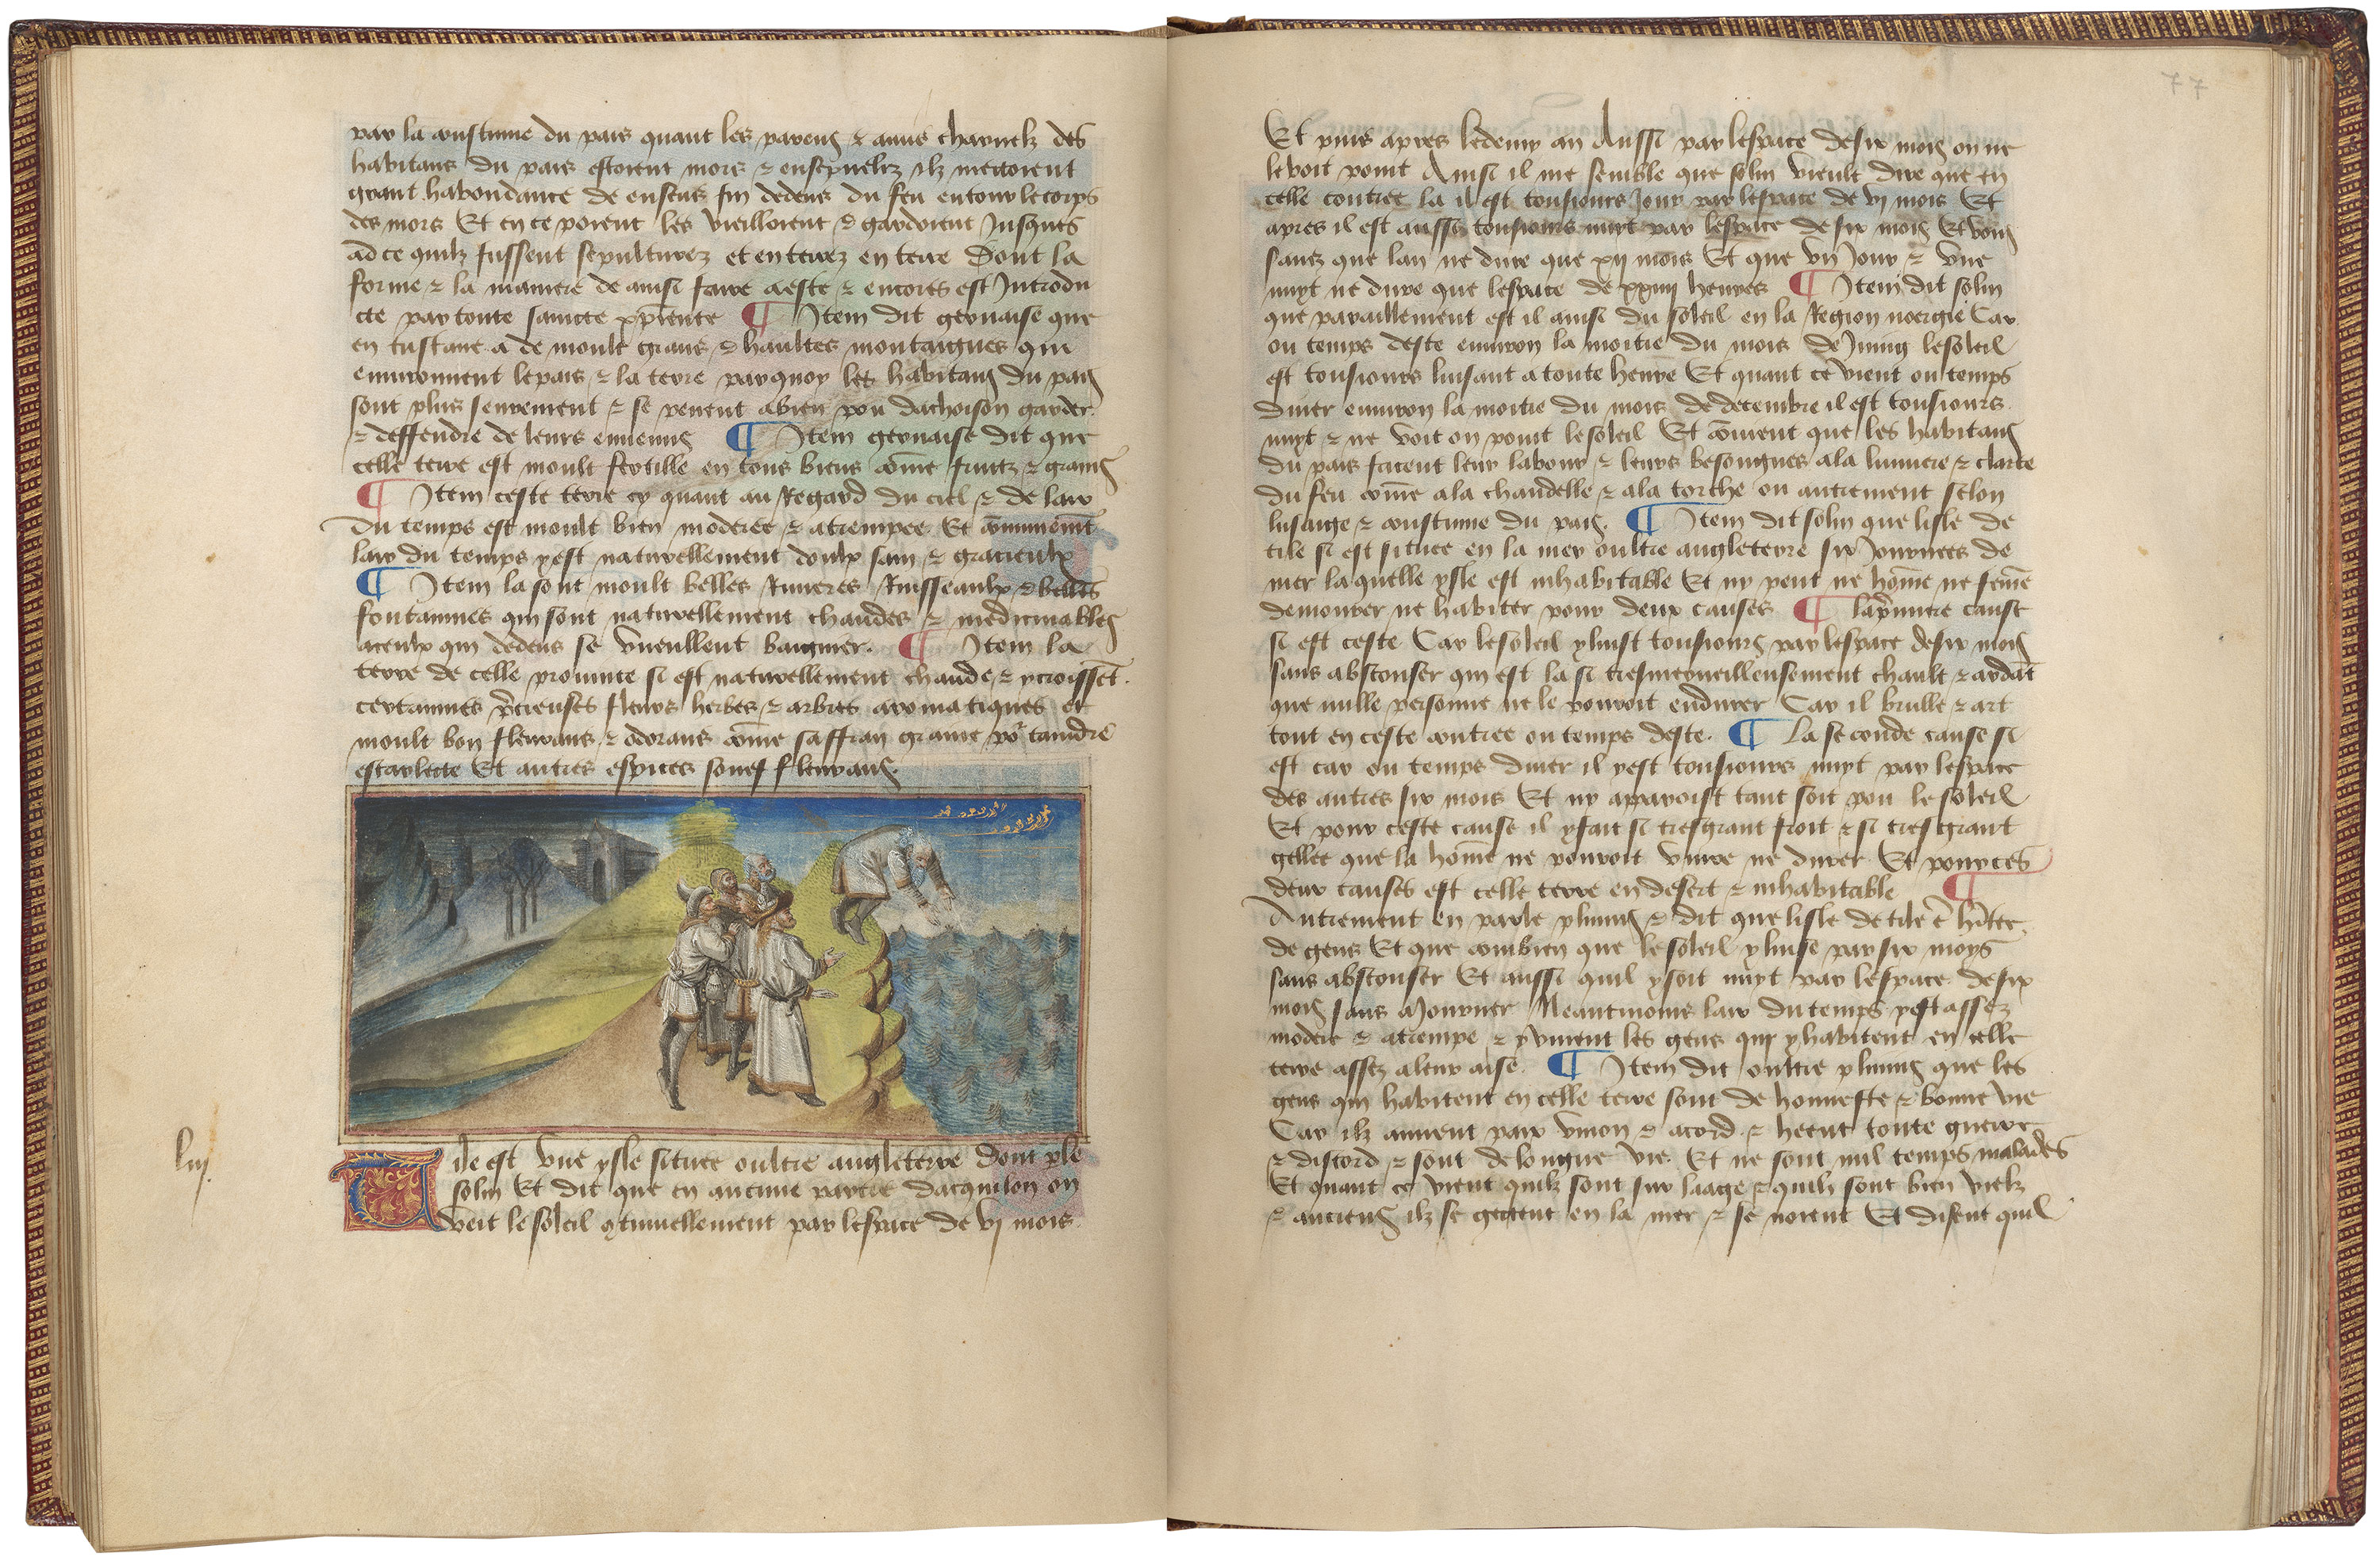 par la coustume du pais quant les parens ⁊ amis charnelz des
habitans du pais estoient mors ⁊ ensepuelitz ilz mettoient
grant habondance de encens fin dedens du feu entour le corps
des mors Et en ce point les vieilloient ⁊ gardoient jusques
ad ce quilz fussent sepulturez et enterrez en terre Dont la
forme ⁊ la maniere de ainsi faire a este ⁊ encores est Introdu
cte par toute saincte xp̄iente ¶ Item dit gervaise que
en tustane a de moult grans ⁊ haultes montaignes qui
environnent le pais ⁊ la terre par quoy les habitans du pais
sont plus seurement ⁊ se peuent a bien pou dachoison garder
⁊ deffendre de leurs ennemis ¶ Item gervaise dit que
celle terre est moult fertille en tous biens cōme fruitz ⁊ grains
¶ Item ceste terre cy quant au Regard du ciel ⁊ de lair
du temps est moult bien moderee ⁊ atrempee Et cōmunemēt
lair du temps y est naturellement doulx sain ⁊ gracieulx
¶ Item la sont moult belles Rivieres Ruisseaulx ⁊ belles
fontainnes qui sont naturellement chaudes ⁊ medicinables
a ceulx qui dedens se vueullent baigner. ¶ Item la
terre de celle province si est naturellement chaude ⁊ y croissēt
certainnes p̄cieuses fleurs herbes ⁊ arbres aromatiques et
moult bon fleurans ⁊ odorans cōme saffran graine po͛ taindre
escarlecte Et autres espices souef fleurans
lvj.
Tile est vne ysle situee oultre angleterre dont p̱le
solin Et dit que en aucune partie dacquilon on
voit le soleil cōtinuellement par lespace de vj mois.
77
Et puis apres le demy an Aussi par lespace de six mois on ne
le voit point Ainsi il me semble que solin vieult dire que en
celle contree la il est tousiours Jour par lespace de vj mois Et
apres il est aussi tousiours nuyt par lespace de six mois Et vous
savez que lan ne dure que xij mois Et que vn Jour ⁊ vne
nuyt ne dure que lespace de xxiiij heures ¶ Item dit solin
que paraillement est il ainsi du soleil en la Region noergie Car
ou temps deste environ la moitie du mois de Juing le soleil
est tousiours luisant a toute heure Et quant ce vient ou temps
diver environ la moitie du mois de decembre il est tousiours
nuyt ⁊ ne voit on point le soleil Et cōvient que les habitans
du pais facent leur labour ⁊ leurs besongnes a la lumiere ⁊ clarte
du feu cōme a la chandelle ⁊ a la torche ou autrement selon
lusaige ⁊ coustume du pais. ¶ Item dit solin que lisle de
tile si est situee en la mer oultre angleterre six Journees de
mer la quelle ysle est inhabitable Et ny peut ne hōme ne femē
demourer ne habiter pour deux causes ¶ La p̄miere cause
si est ceste Car le soleil y luist tousiours par lespace de six mois
sans absconser qui est la si tresmerveilleusement chault ⁊ ardāt
que nulle personne ne le pourroit endurer Car il brulle ⁊ art
tout en ceste contree ou temps deste. ¶ La seconde cause si
est car ou temps diver il y est tousiours nuyt par lespace
des autres six mois Et ny apparoist tant soit pou le soleil
Et pour ceste cause il y fait si tresgrant froit ⁊ si tresgrant
gellee que la hōme ne pourroit vivre ne durer Et pour ces
deux causes est celle terre en desert ⁊ inhabitable ¶
Autrement en parle plinius ⁊ dit que lisle de tile ē h̄itee
de gens Et que combien que le soleil y luise par six moys
sans absconser Et aussi quil y soit nuyt par lespace de six
mois sans adjourner Neantmoins lair du temps y est assez
modere ⁊ atrempe ⁊ y vivent les gens qui y habitent en celle
terre assez a leur aise. ¶ Item dit oultre plinius que les
gens qui habitent en celle terre sont de honneste ⁊ bonne vie
Car ilz aiment paix vnion ⁊ acord ⁊ heent toute guerre
⁊ discord ⁊ sont de longue vie Et ne sont nul temps malades
Et quant ce vient quilz sont sur laage ⁊ quilz sont bien vielz
⁊ anciens ilz se gectent en la mer ⁊ se noient Et disent quil